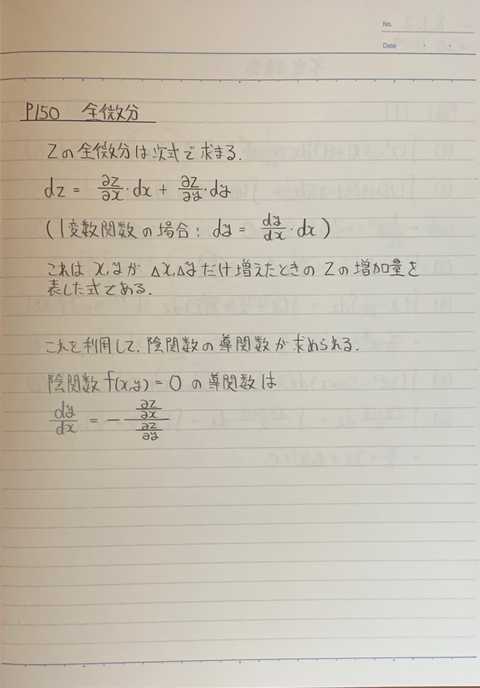 No.
Date
P150 全微分
Zの全微分は次式で求まる.
dz = ∂z/∂x・dx + ∂z/∂y・dy
(1変数関数の場合: dy = dy/dx・dx)
これは x,yが △x,△yだけ増えたときの Zの増加量を
表した式である.
これを利用して、陰関数の導関数が求められる.
陰関数 f(x,y) = 0 の導関数は
dy/dx = - (∂z/∂x)/(∂z/∂y)